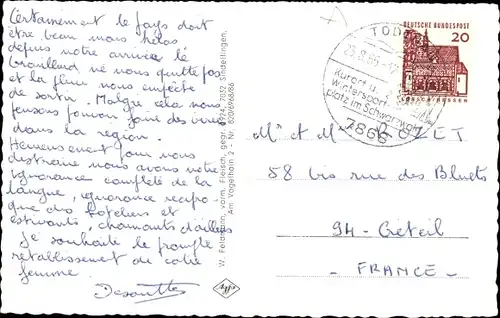 Certainement le pays doit
être beau mais hélas
depuis notre arrivée le
brouillard ne nous quitte pas
et la pluie nous empêche
de sortir. Malgré cela nous
pensons pouvoir faire des
dans la région.
Heureusement pour nous
distraire nous avons notre
ignorance complète de la
langue, ignorance récipro-
que des hôteliers et
estivants, charmants d'ailleurs
Je souhaite le prompt
rétablissement de votre
femme.
W. Feldmann, vorm. Fleisch, gegr. 1924, 7032 Sindelfingen,
Am Vogelhain 2 - Nr.
TOD
Kurort u.
Wintersport-
platz im Schwarzwald
7868
DEUTSCHE BUNDESPOST
20
LORSCH/HESSEN
Mr et Mme
58 bis rue des Bluets
94-Créteil
- FRANCE -